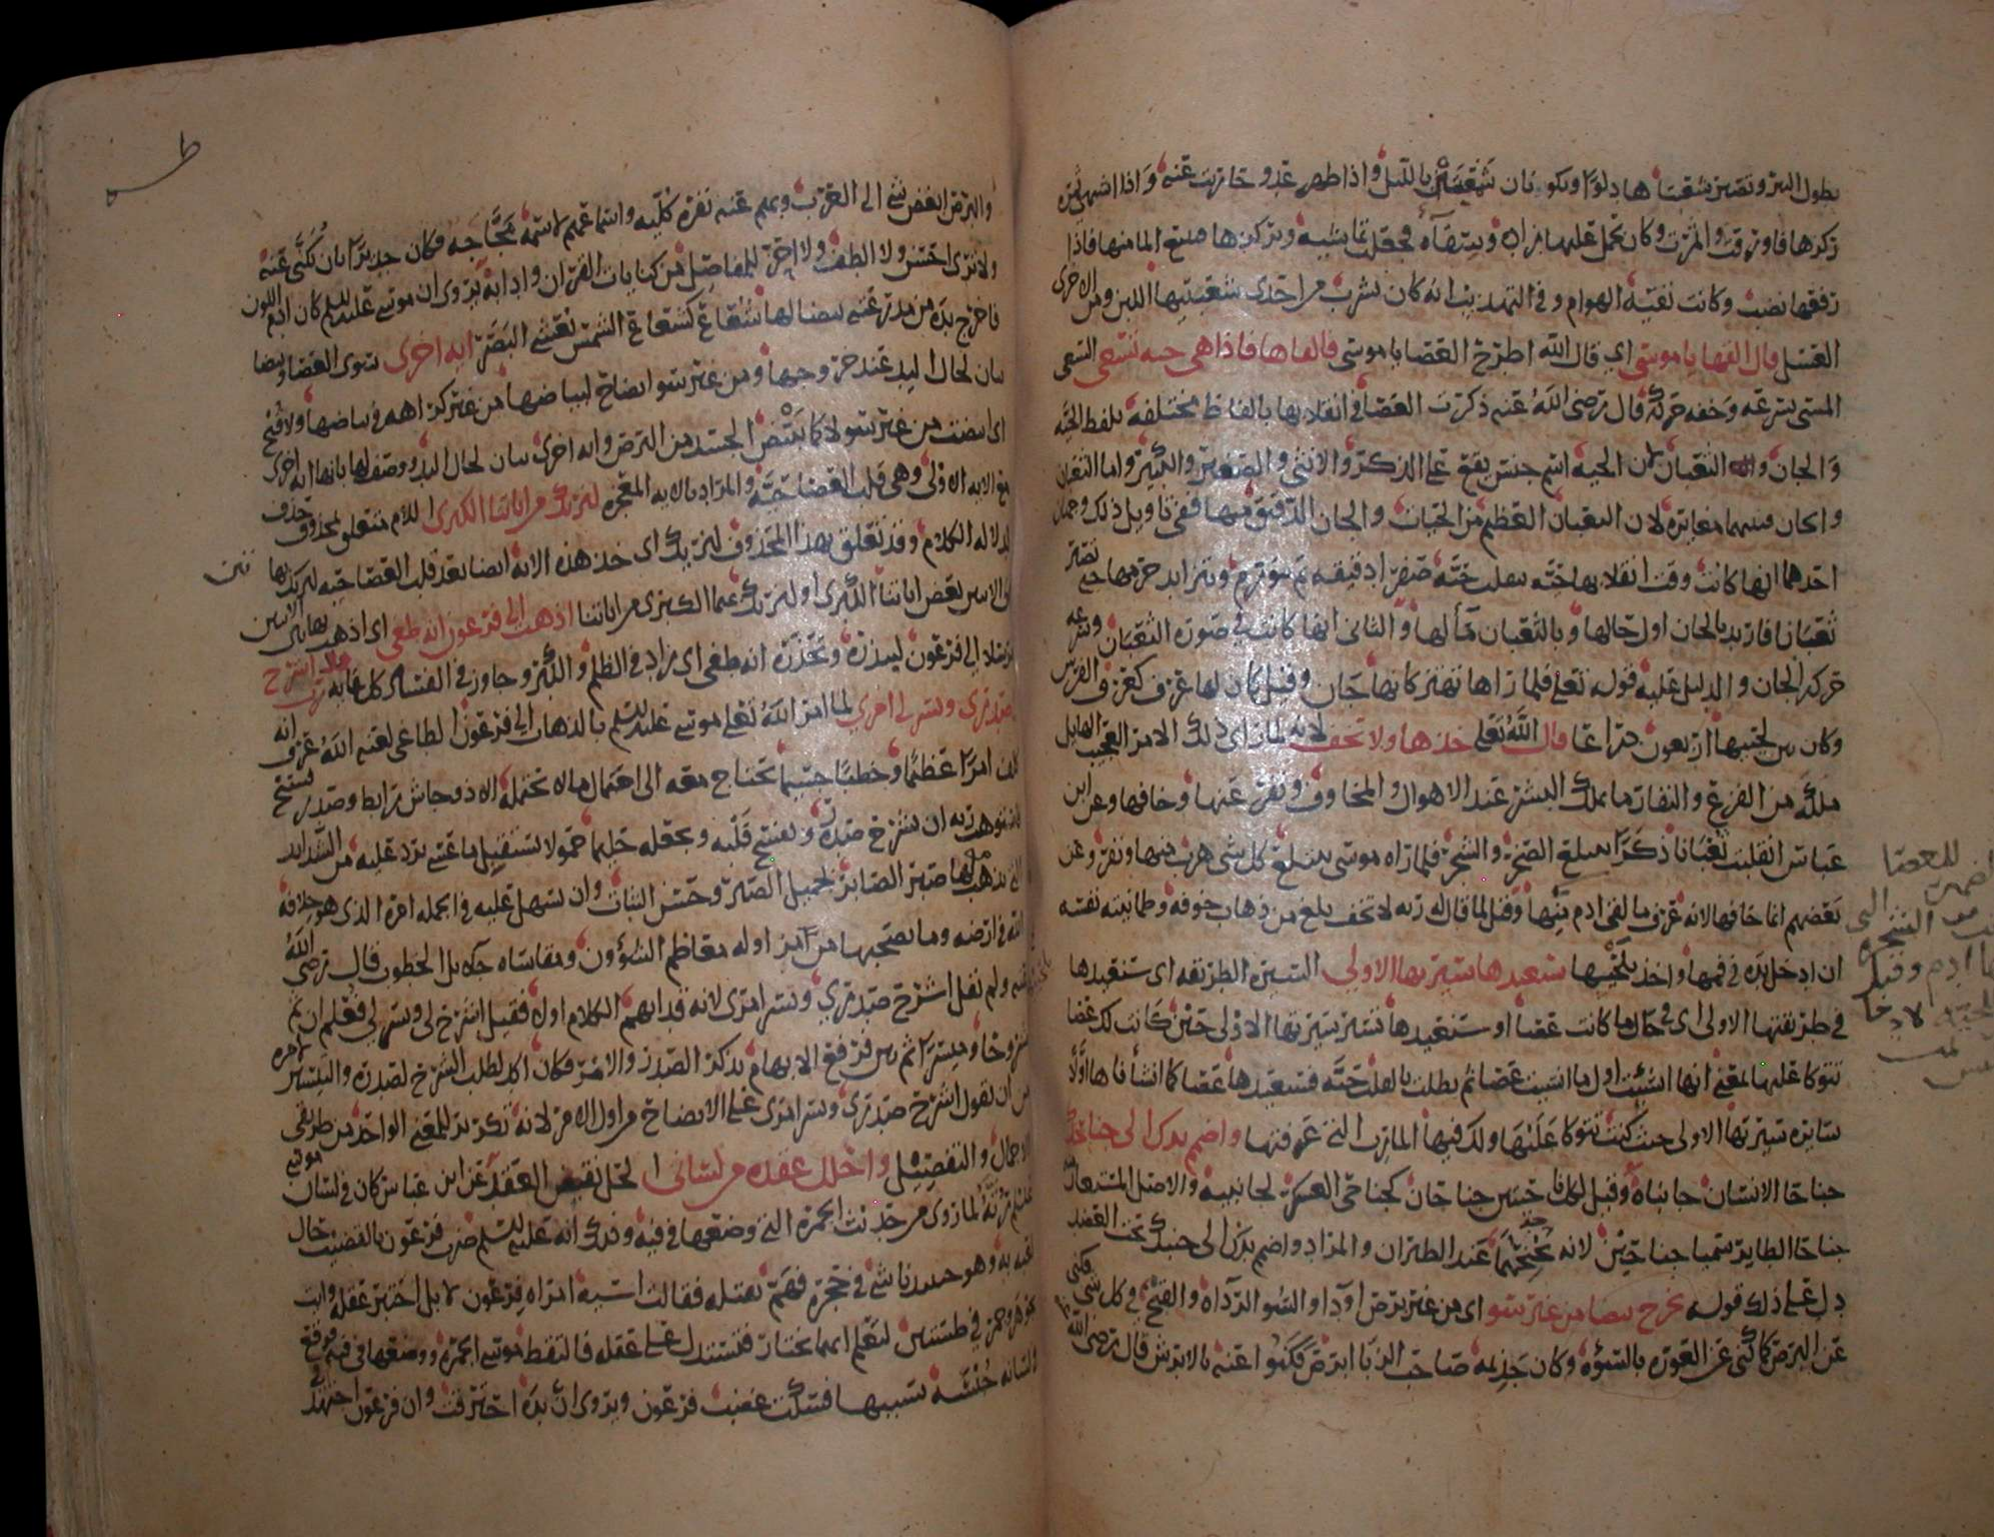 بطول البئر وتصير شعبتاها دلوا وتكونان شمعتين بالليل واذا ظهر عدو حاربت عنه واذا اشتهى ثمرة
ركزها فاورقت واثمرت وكان يحمل عليها زاده وسقاءه فجعلت تماشيه ويركزها فينبع الماء منها فاذا
رفعها نضب وكانت تقيه الهوام وفي التهذيب انه كان يشرب من احدى شعبتيها اللبن ومن الاخرى
العسل قال القها يا موسى اي قال الله اطرح العصا يا موسى فالقاها فاذا هي حية تسعى السعي
المشي بسرعة وخفة حركة قال رضي الله عنه ذكرت العصا في انقلابها بالفاظ مختلفة بلفظ الحية
والجان والثعبان لان الحية اسم جنس يقع على الذكر والانثى والصغير والكبير واما الثعبان
والجان فبينهما مغايرة لان الثعبان العظيم من الحيات والجان الدقيق منها ففي تاويل ذلك وجهان
احدهما انها كانت وقت انقلابها حية تنقلب حية صفراء دقيقة ثم تتورم ويتزايد جرمها حتى تصير
ثعبانا فاريد بالجان اول حالها وبالثعبان مآلها والثاني انها كانت في صورة الثعبان وسرعة
حركة الجان والدليل عليه قوله تعلى فلما راها تهتز كانها جان وقيل كان لها عرف كعرف الفرس
وكان بين لحييها اربعون ذراعا قال الله تعلى خذها ولا تخف لانه لما راى ذلك الامر العجيب الهايل
ملكه من الفزع والنفار ما يملك البشر عند الاهوال والمخاوف ونفر عنها وخافها وعن ابن
عباس انقلبت ثعبانا ذكرا يبتلع الصخر والشجر فلما راه موسى يبتلع كل شي هرب منها ونفر وعن
بعضهم انما خافها لانه عرف ما لقي ادم منها وقيل لما قال له ربه لا تخف بلغ من ذهاب خوفه وطمانينة نفسه
ان ادخل يده في فمها واخذ بلحييها سنعيدها سيرتها الاولى السيرة الطريقة اي سنعيدها
في طريقتها الاولى اي في حال ما كانت عصا او سنعيدها تسير سيرتها الاولى حين كانت لك عصا
تتوكا عليها بمعنى انها انشئت اول ما انشئت عصا ثم بطلت بالقلب حية فسنعيدها عصا كما انشاناها اولا
سايرة سيرتها الاولى حيث كنت تتوكا عليها ولك فيها المارب التي عرفتها واضمم يدك الى جناحك
جناحا الانسان جانباه وقيل لكل ناحيتين جناحان كجناحي العسكر لجانبيه والاصل المستعار منه
جناحا الطاير سميا جناحين لانه يجنحهما عند الطيران والمراد واضمم يدك الى جنبك تحت العضد
دل على ذلك قوله تخرج بيضا من غير سو اي من غير برص او داء والسو الرداة والقبح في كل شي فكني به
عن البرص كما كني عن العورة بالسوءة وكان جذيمة صاحب الزبا ابرص فكنوا عنه بالابرش قال رضي الله
للعصا
طه
والبرص ابغض شي الى العرب وبهم عنه نفرة كلية واسماعهم لاسمه مجاجة فكان جديرا بان يكنى عنه
ولا نرى احسن ولا الطف ولا احز للمفاصل من كنايات القران وادابه يروى ان موسى عليه السلم كان ادم اللون
فاخرج يده من مدرعته بيضا لها شعاع كشعاع الشمس تغشى البصر اية اخرى سوى العصا وبيضا
بيان لحال اليد عند خروجها ومن غير سو ايضاح لبياضها من غير كراهة في بياضها ولا قبح
اي ابيضت من غير سو لا كما يبيض الجسد من البرص واية اخرى بيان لحال اليد ووصف لها بانها اية اخرى
مع الاية الاولى وهي قلب العصا حية والمراد بالاية المعجزة لنريك من اياتنا الكبرى اللام متعلق بمحذوف حذف
لدلالة الكلام وقد تعلق بهذا المحذوف لنريك اي خذ هذه الاية ايضا بعد قلب العصا حية لنريك بها تين
الايتين بعض اياتنا الكبرى او لنريك بهما الكبرى من اياتنا اذهب الى فرعون انه طغى اي اذهب بهاتين الايتين
رسولا الى فرعون لينذره وتحذره انه طغى اي زاد في الظلم والكبر وجاوز في الفساد كل غاية قال رب اشرح
لي صدري ويسر لي امري لما امر الله تعلى موسى عليه السلم بالذهاب الى فرعون الطاغي لعنه الله عرف انه
كلف امرا عظيما وخطبا جسيما يحتاج معه الى احتمال ما لا يحتمله الا ذو جاش رابط وصدر فسيح
فاستوهب ربه ان يشرح صدره ويفسح قلبه ويجعله حليما حمولا يستقبل ما عسى يرد عليه من الشدايد
التي يذهب معها صبر الصابر بجميل الصبر وحسن الثبات وان يسهل عليه في الجملة امره الذي هو خلافة
الله في ارضه وما يصحبها من مزاولة معاظم الشؤون ومقاساة جلايل الخطوب قال رضي الله
عنه ولم يقل اشرح صدري ويسر امري لانه قد ابهم الكلام اولا فقيل اشرح لي ويسر لي فعلم ان ثم
مشروحا وميسرا ثم بين فرفع الابهام بذكر الصدر والامر فكان اكد لطلب الشرح لصدره والتيسير لامره
من ان يقول اشرح صدري ويسر امري على الايضاح من اول الامر لانه تكرير للمعنى الواحد من طريقي
الاجمال والتفصيل واحلل عقدة من لساني الحل نقيض العقد عن ابن عباس كان في لسان موسى
عليه السلم رتة لما روى من حديث الجمرة التي وضعها في فيه وذلك انه عليه السلم ضرب فرعون بالقضيب حال
لعبه به وهو حينئذ ناشي في حجره فهم بقتله فقالت اسية امراة فرعون لا بل اختبر عقله وايت
بجوهر وجمر في طستين لتعلم ايهما يختار فتستدل على عقله فالتقط موسى الجمرة ووضعها في فيه فوقع في
لسانه حبسة بسببها فسكت غضب فرعون ويروى ان يده احترقت وان فرعون اجتهد